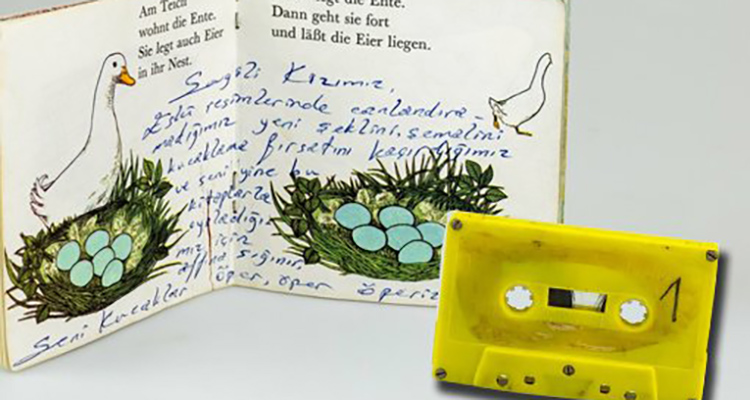 Am Teich
wohnt die Ente.
Sie legt auch Eier
in ihr Nest.
die Ente.
Dann geht sie fort
und läßt die Eier liegen.
Sevgili Kızımız,
Eski resimlerinde canlandıra-
madığımız yeni şeklini, şemalini
kucaklama fırsatını kaçırdığımız
ve seni yine bu
kitaplarla
oyaladığı-
mız için
affına sığınır,
Seni kucaklar öper, öper öperiz
1